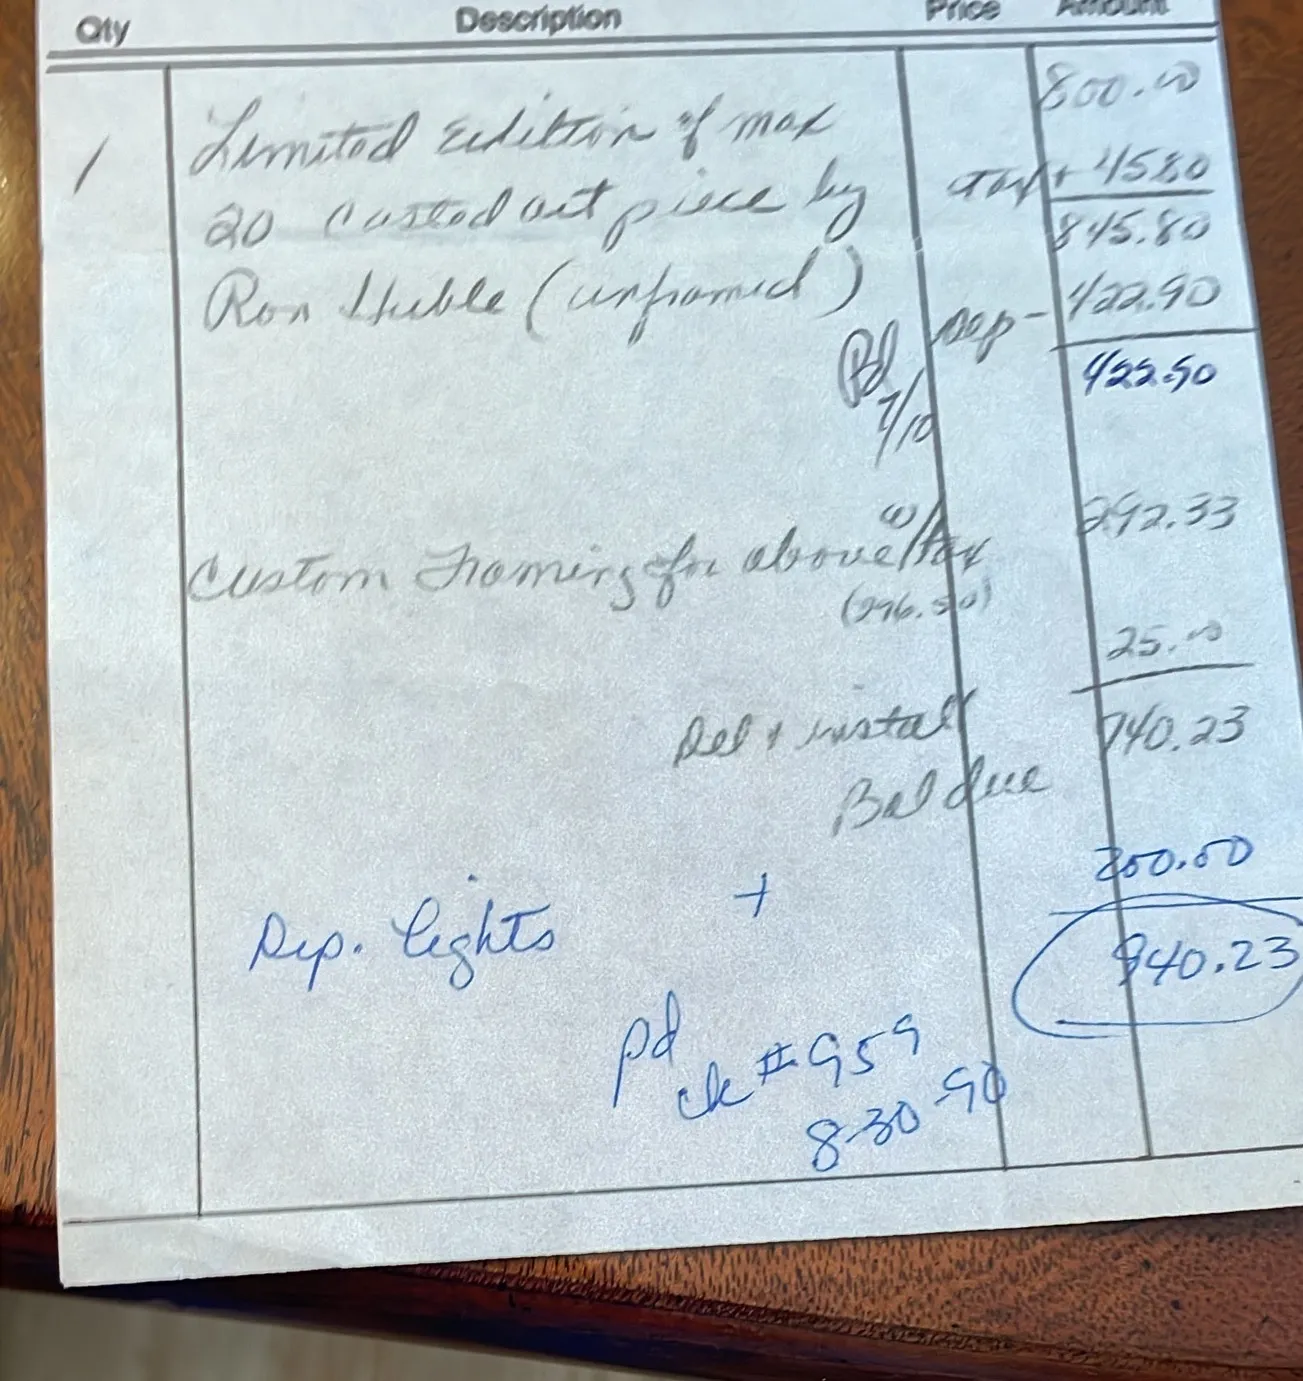 Qty Description Price Amount
800.00
1 Limited Edition of max
Tax + 45.80
20 Casted art piece by 845.80
Ron Huble (unframed) Dep - 422.90
Pd 422.90
7/10
Custom Framing for above w/ tax 292.33
(276.50)
25.00
Del & install 740.23
Bal due
200.00
Dep. lights + 940.23
pd
ck # 959
8-30-90